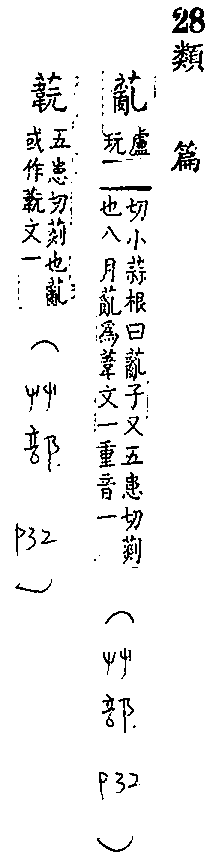 28類篇
薍 盧玩切小蒜根曰薍子又五患切菼
也八月薍爲葦文一重音一
(艸部 P32)
五患切菼也薍
或作 文一
(艸部 P32)